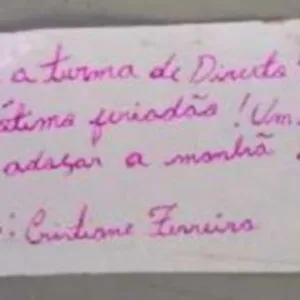 a turma de Direito
ótimo feriadão! Um
adoçar a manhã
: Cristiane Ferreira